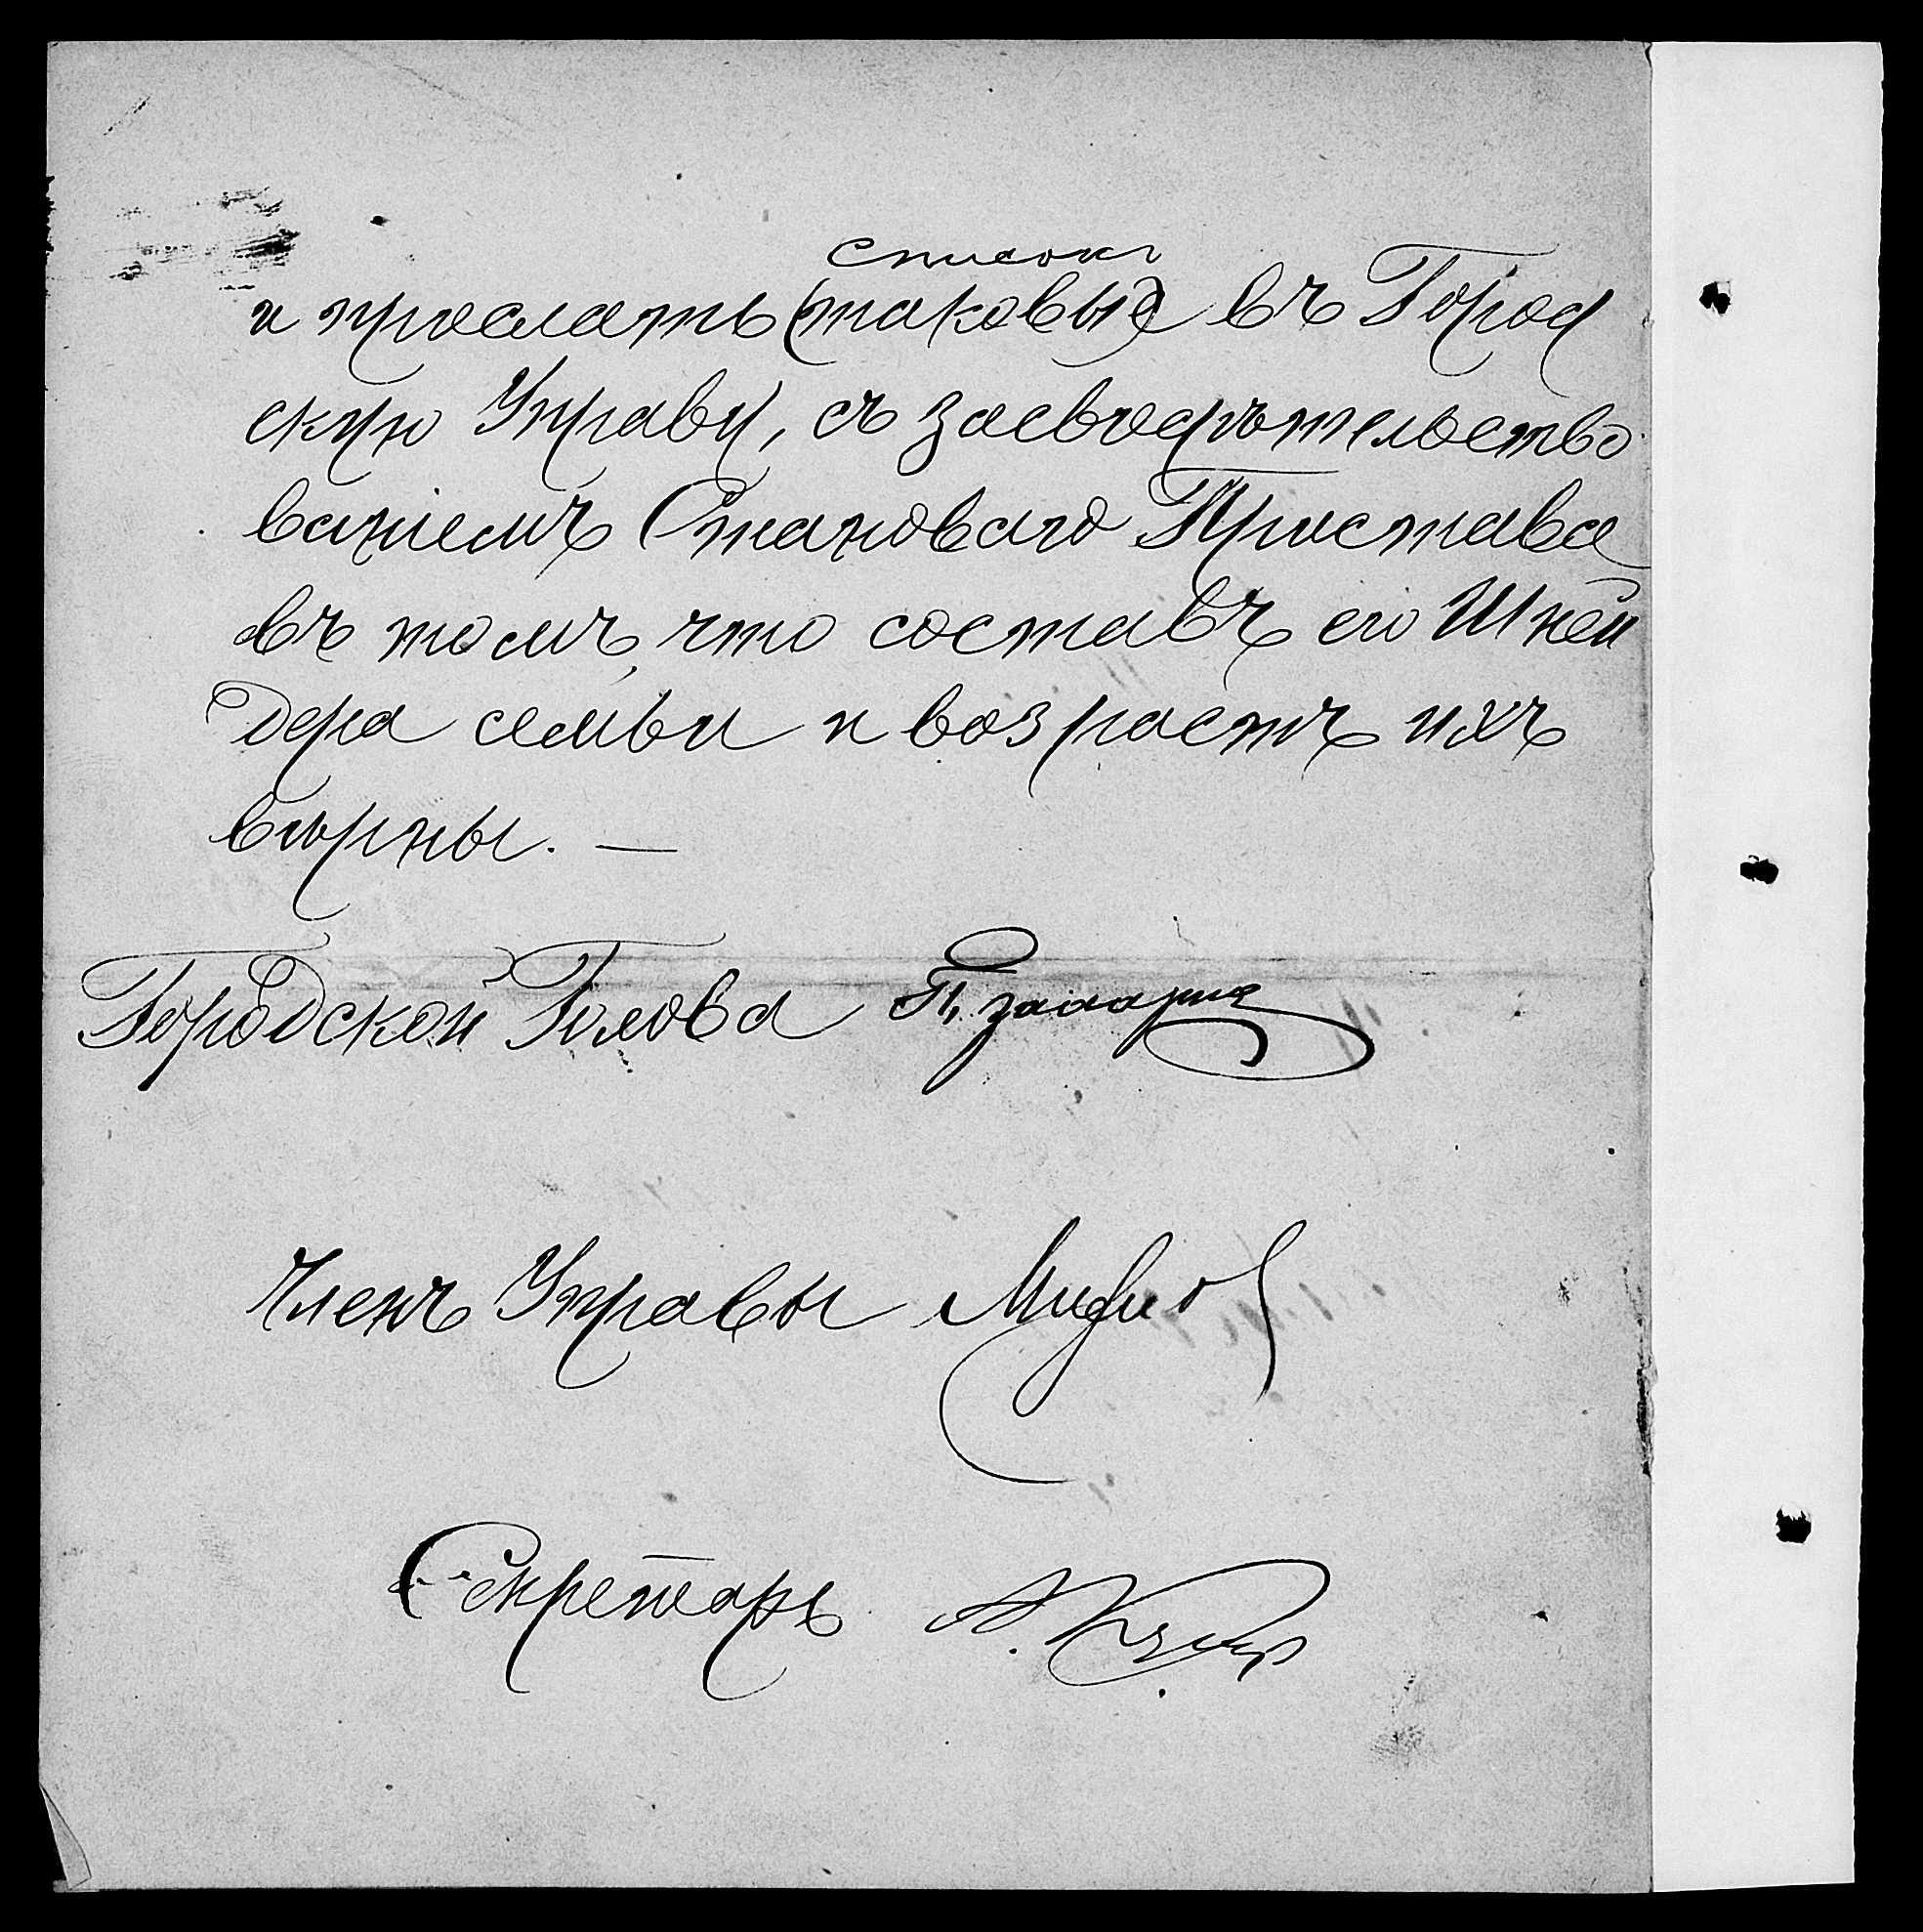 списокъ
и прислать (таковые) въ Город
скую Управу, съ засвидѣтельство
ваніемъ Становаго Пристава
въ томъ, что составъ его Шней
дера семьи и возрастъ ихъ
вѣрны. —
Городской Голова П.
Членъ Управы
Секретарь